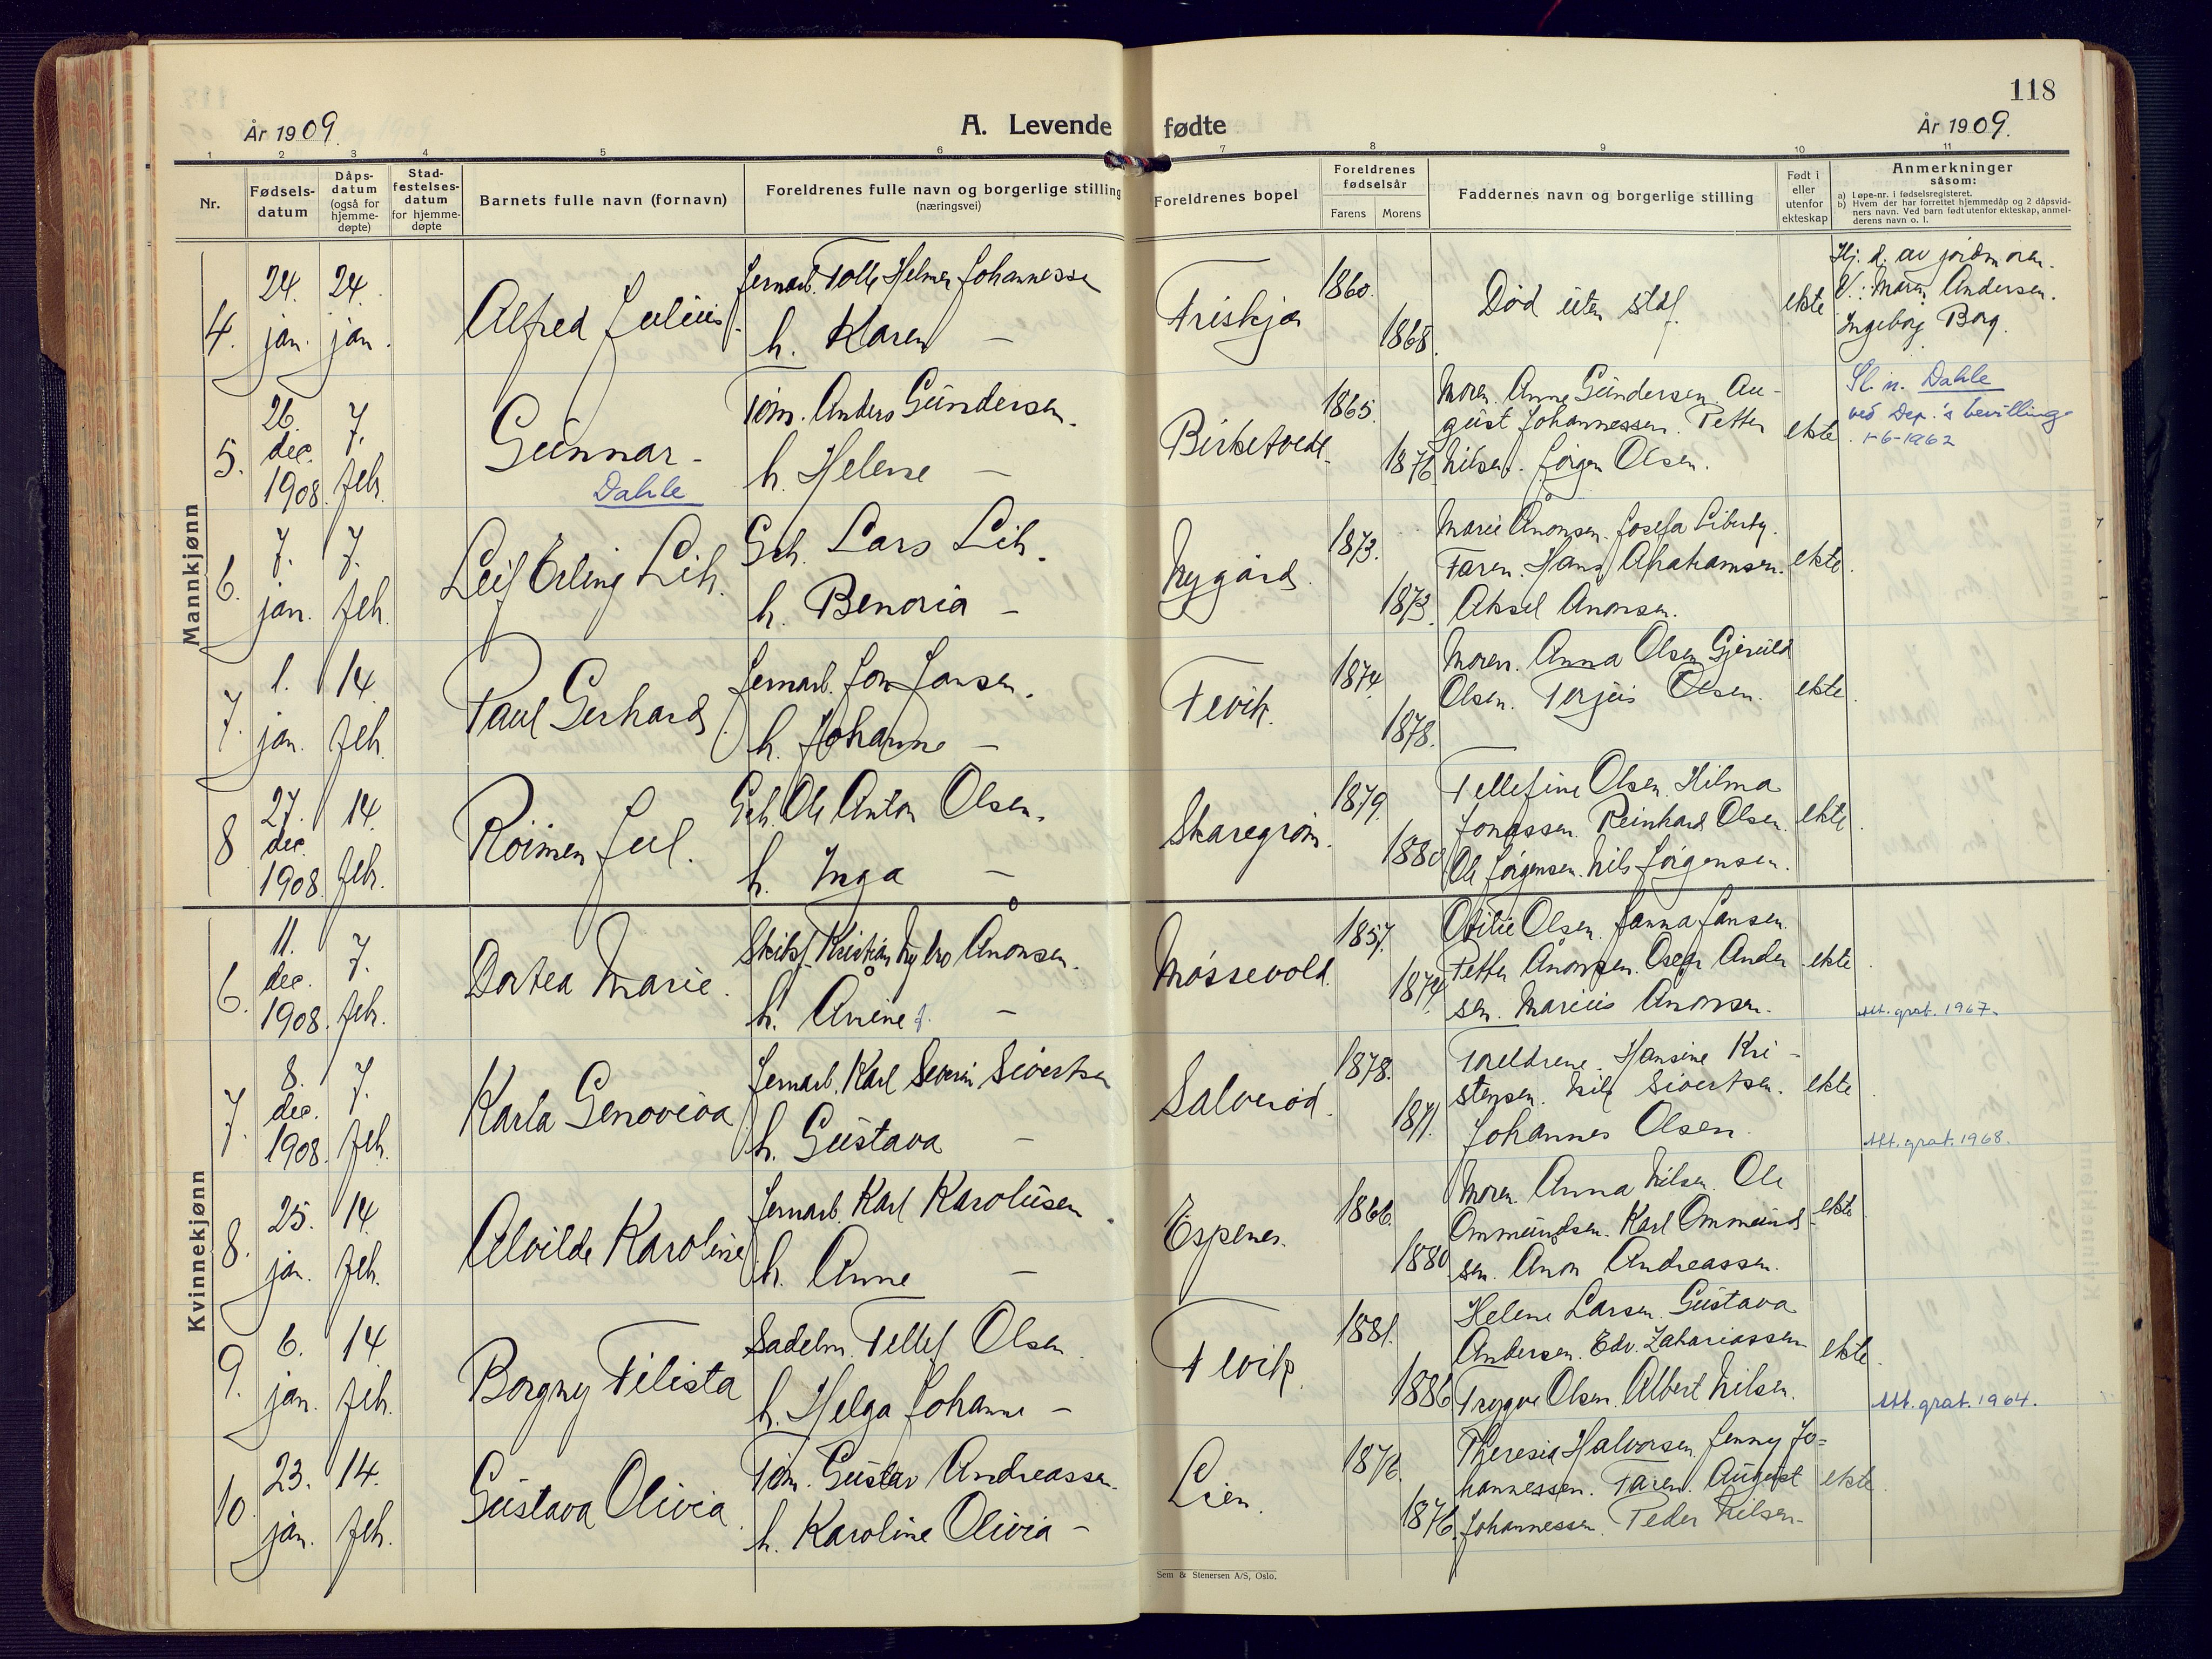 118
År 1909.
A. Levende fødte
År 1909.
1 2 3 4 5 6 7 8 9 10 11
Nr.
Fødsels-
datum
Dåps-
datum
(også for
hjemme-
døpte)
Stad-
festelses-
datum
for hjemme-
døpte
Barnets fulle navn (fornavn)
Foreldrenes fulle navn og borgerlige stilling
(næringsvei)
Foreldrenes bopel
Foreldrenes
fødselsår
Farens Morens
Faddernes navn og borgerlige stilling
Født i
eller
utenfor
ekteskap
Anmerkninger
såsom:
a) Løpe-nr. i fødselsregisteret.
b) Hvem der har forrettet hjemmedåp og 2 dåpsvid-
ners navn. Ved barn født utenfor ekteskap, anmel-
derens navn o. l.
Mannkjønn
4.
24.
jan.
24.
jan.
Alfred Julius
Jernarb. Tolle Helmer Johannessen
h. Karen —
Friskjær
1860.
1868.
Død uten stdf.
ekte
Hj. d. av jordmoren.
V.: Maren Andersen.
Ingeborg Borg.
5.
26.
dec.
1908
7.
feb.
Gunnar
Dahle
Tøm. Anders Gundersen.
h. Helene —
Birketvedt
1865.
1876
Moren. Anne Gundersen. Au-
gust Johannessen. Petter
Nilsen. Jørgen Olsen.
ekte.
Sl. n. Dahle
ved Dep.'s bevilling
1-6-1962
6.
7.
jan.
7.
feb.
Leif Erling Lih.
Gch. Lars Lih.
h. Benoria —
Nygård.
1873.
1873.
Marie Anonsen. Josefa Liberty.
Faren. Hans Abrahamsen.
Aksel Anonsen.
ekte.
7.
1.
jan.
14
feb.
Paul Gerhard
Jernarb. Jon Jansen.
h. Johanne —
Fevik.
1874.
1878.
Moren. Anna Olsen. Gjeruld
Olsen. Terjus Olsen.
ekte.
8
27.
dec.
1908.
14.
feb.
Roimen Jul.
Gch. Ole Anton Olsen.
h. Inga —
Skaregrøm.
1879.
1880
Tellefine Olsen. Hilma
Jonassen. Reinhard Olsen.
Ole Jørgensen. Nils Jørgensen.
ekte.
Kvinnekjønn
6.
11.
dec.
1908.
7.
feb.
Dortea Marie.
Skibsf. Kristian Nybro Anonsen.
h. Anine —
Møssevold.
1857.
1874
Otilie Olsen. Janna Jansen.
Petter Anonsen. Oscar Ander-
sen. Marius Anonsen.
ekte.
Att. grat. 1967.
7.
8.
dec.
1908.
7.
feb.
Karla Genoviva
Jernarb. Karl Severin Sivertsen
h. Gustava —
Salverød.
1878.
1871.
Foreldrene. Hansine Kri-
stensen. Nils Sivertsen.
Johannes Olsen.
ekte.
Att. grat. 1968.
8.
25.
jan.
14
feb.
Alvilde Karoline
Jernarb. Karl Karoliusen.
h. Anne —
Espenes.
1866.
1880
Moren. Anna Nilsen. Ole
Ommundsen. Karl Ommund-
sen. Anon Andreassen.
ekte
9.
6.
jan.
14
feb.
Borgny Filista
Sadelm. Tellef Olsen.
h. Helga Johanne —
Fevik.
1881.
1886
Helene Larsen. Gustava
Andersen. Edv. Zakariassen
Trygve Olsen. Albert Nilsen.
ekte.
Att. grat. 1964.
10.
23.
jan.
14.
feb.
Gustava Olivia.
Tøm. Gustav Andreassen.
h. Karoline Olivia —
Lien.
1876.
1876.
Theresia Halvorsen. Jenny Jo-
hannessen. Faren. August
Johannessen. Peder Nilsen.
ekte.
Sem & Stenersen A/S, Oslo.